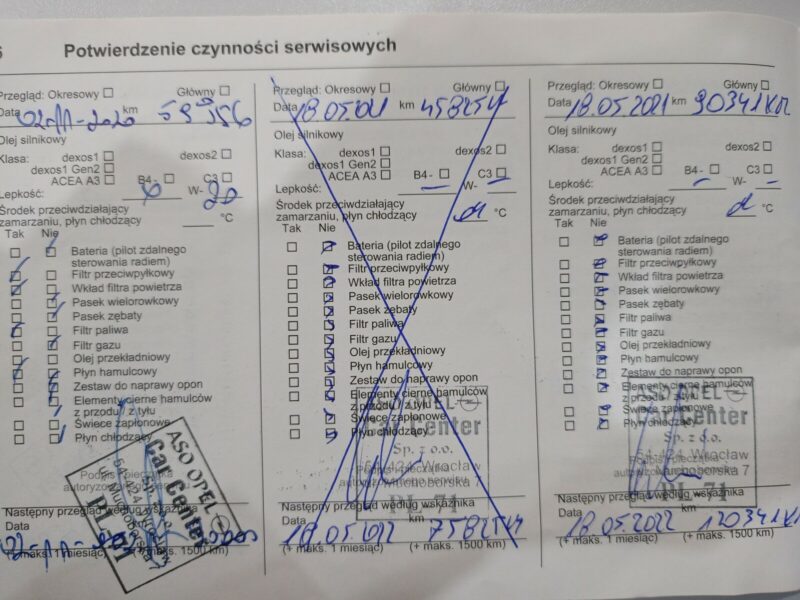 6
Potwierdzenie czynności serwisowych
Przegląd: Okresowy
Główny
Data 02-11-2020 km 59 156
Olej silnikowy
Klasa: dexos1
dexos2
dexos1 Gen2
ACEA A3
B4 -
C3
Lepkość:
W- 20
Środek przeciwdziałający
zamarzaniu, płyn chłodzący
°C
Tak Nie
Bateria (pilot zdalnego
sterowania radiem)
Filtr przeciwpyłkowy
Wkład filtra powietrza
Pasek wielorowkowy
Pasek zębaty
Filtr paliwa
Filtr gazu
Olej przekładniowy
Płyn hamulcowy
Zestaw do naprawy opon
Elementy cierne hamulców
z przodu / z tyłu
Świece zapłonowe
Płyn chłodzący
ASO OPEL
Car Center
Sp. z o.o.
PL 71
Następny przegląd według wskaźnika
Data
(+ maks. 1 miesiąc)
(+ maks. 1500 km)
Przegląd: Okresowy
Główny
Data 18.05. km 45825
Olej silnikowy
Klasa: dexos1
dexos2
dexos1 Gen2
ACEA A3
B4 -
C3
Lepkość: –
W- –
Środek przeciwdziałający
zamarzaniu, płyn chłodzący
°C
Tak Nie
Bateria (pilot zdalnego
sterowania radiem)
Filtr przeciwpyłkowy
Wkład filtra powietrza
Pasek wielorowkowy
Pasek zębaty
Filtr paliwa
Filtr gazu
Olej przekładniowy
Płyn hamulcowy
Zestaw do naprawy opon
Elementy cierne hamulców
z przodu / z tyłu
Świece zapłonowe
Płyn chłodzący
OPEL
Car Center
Sp. z o.o.
Wrocław
PL 71
Następny przegląd według wskaźnika
Data
km
18.05.2022 75825
(+ maks. 1 miesiąc)
(+ maks. 1500 km)
Przegląd: Okresowy
Główny
Data 18.05.2021 km 90341 KM
Olej silnikowy
Klasa: dexos1
dexos2
dexos1 Gen2
ACEA A3
B4 -
C3
Lepkość: –
W- –
Środek przeciwdziałający
zamarzaniu, płyn chłodzący
°C
Tak Nie
Bateria (pilot zdalnego
sterowania radiem)
Filtr przeciwpyłkowy
Wkład filtra powietrza
Pasek wielorowkowy
Pasek zębaty
Filtr paliwa
Filtr gazu
Olej przekładniowy
Płyn hamulcowy
Zestaw do naprawy opon
Elementy cierne hamulców
z przodu / z tyłu
Świece zapłonowe
Płyn chłodzący
OPEL
Car Center
Sp. z o.o.
54-424 Wrocław
Muchoborska 7
PL 71
Następny przegląd według wskaźnika
Data
km
18.05.2022 120341 KM
(+ maks. 1 miesiąc)
(+ maks. 1500 km)